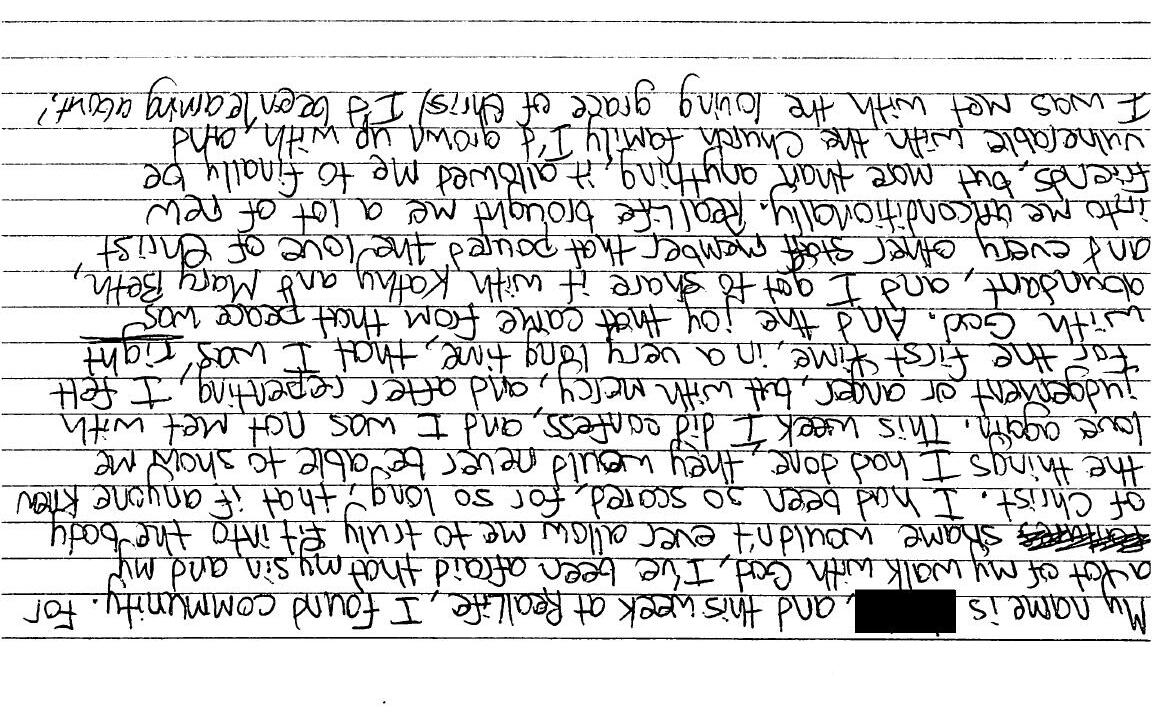 My name is , and this week at RealLife, I found community. For
a lot of my walk with God, I've been afraid that my sin and my
shame wouldn't ever allow me to truly fit into the body
of Christ. I had been so scared, for so long, that if anyone knew
the things I had done, they would never be able to show me
love again. This week I did confess, and I was not met with
judgement or anger, but with mercy, and after repenting, I felt
for the first time, in a very long time, that I was right
with God. And the joy that came from that peace was
abundant, and I got to share it with Kathy and Mary Beth,
and every other staff member that poured the love of Christ
into me unconditionally. RealLife brought me a lot of new
friends, but more than anything, it allowed me to finally be
vulnerable with the Church family I'd grown up with, and
I was met with the loving grace of Christ I'd been learning about!